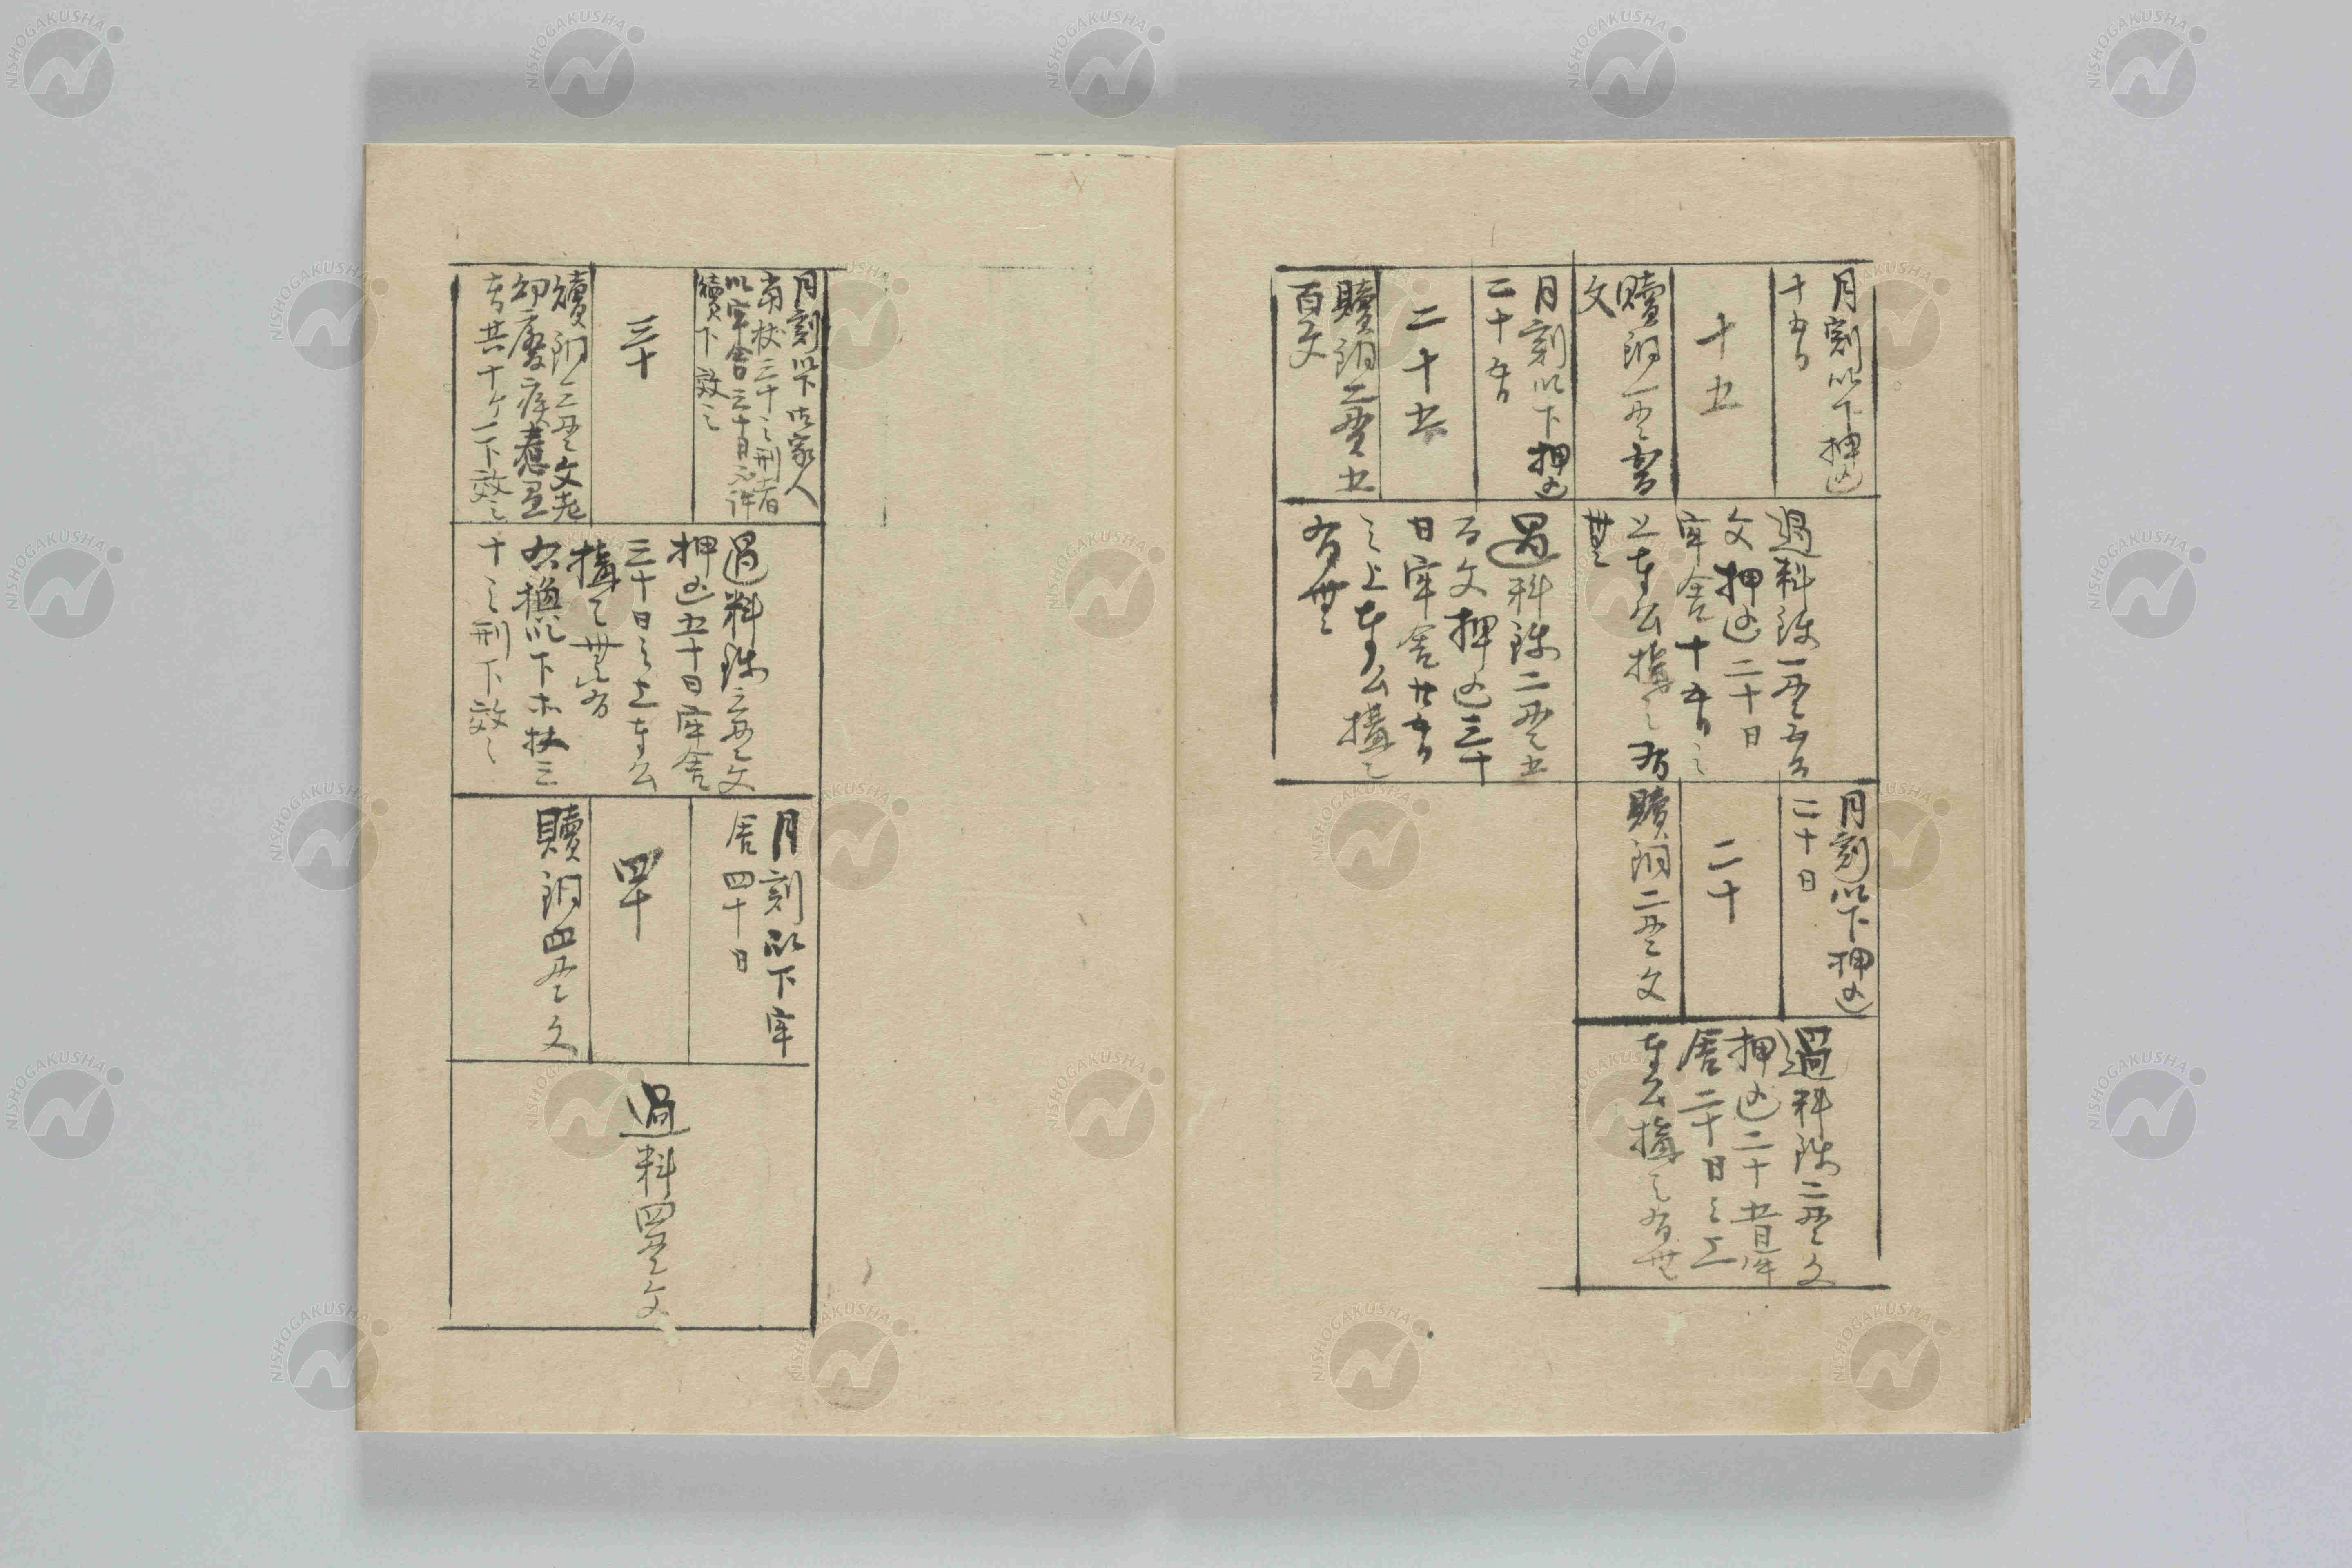 月割以下押込
十五日
十五
贖銅一貫五百
文
過料銭一貫五百
文押込二十日
牢舎十五日之
上在公構之有
無
月割以下押込
二十日
二十
贖銅二貫文
過料銭二貫文
押込二十五日牢
舎二十日之上
在公構之有無
月割以下押込
二十五日
二十五
贖銅二貫五
百文
過料銭二貫五
百文押込三十
日牢舎廿五日
之上在公構之
有無
月割以下御家人
当杖三十之刑者
以牢舎三十日
贖下效之
三十
贖銅三貫文老
幼癈疾
者共十ケ下效之
過料銭三貫文
押込五十日牢舎
三十日之上在公
構之無有
以下木杖三
十之刑下效之
月割以下牢
舎四十日
四十
贖銅四貫文
過料四貫文
NISHOGAKUSHA